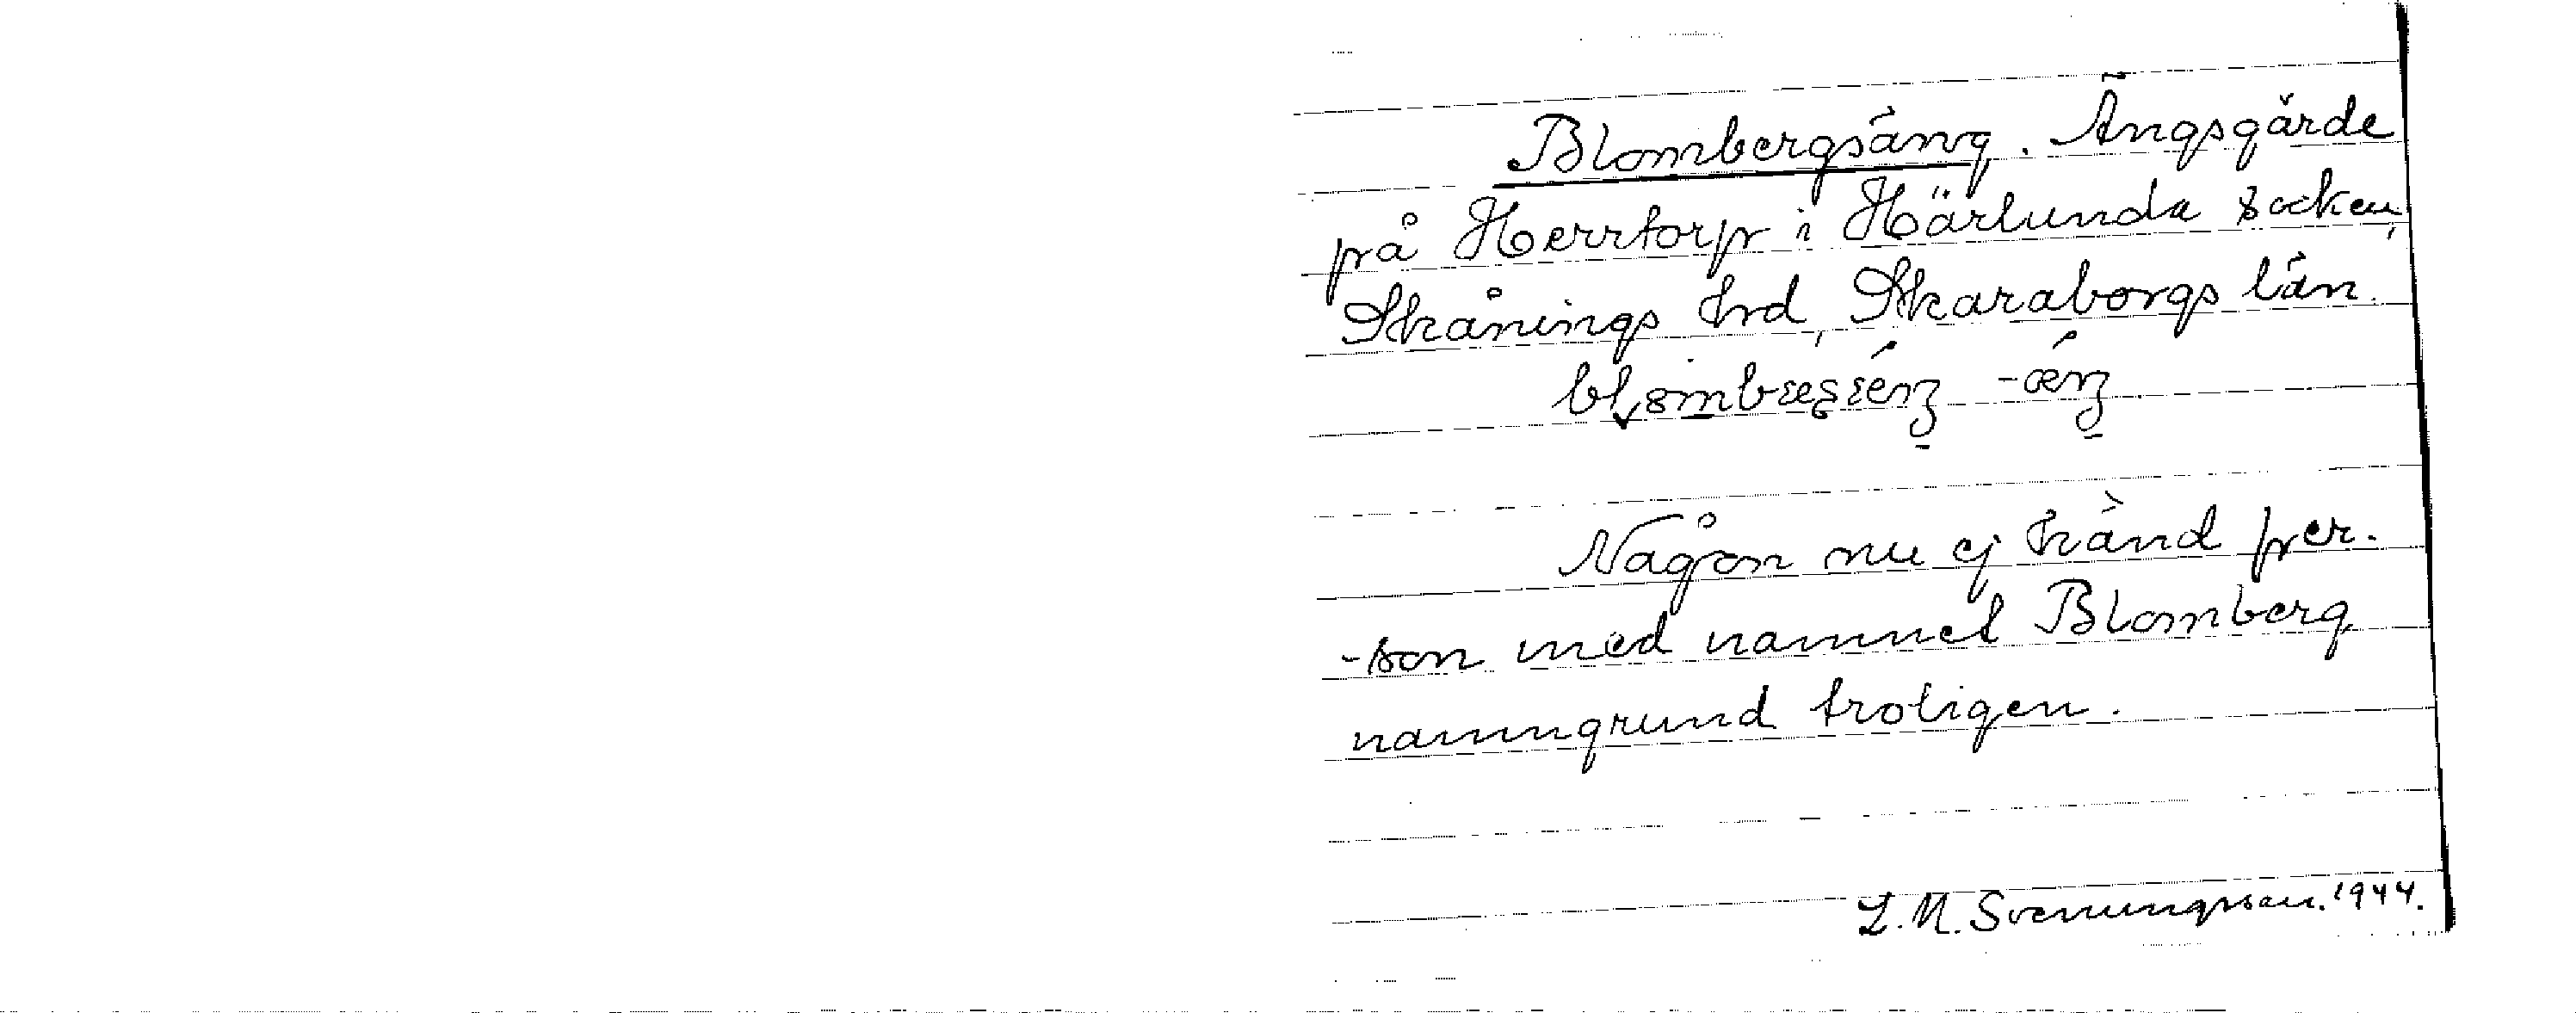 Blombergsäng. Ängsgärde
på Herrtorp i Härlunda socken,
Skånings hrd, Skaraborgs län.
Någon nu ej känd per-
-son med namnet Blomberg
namngrund troligen.
L. M. Svenungsson. 1944.